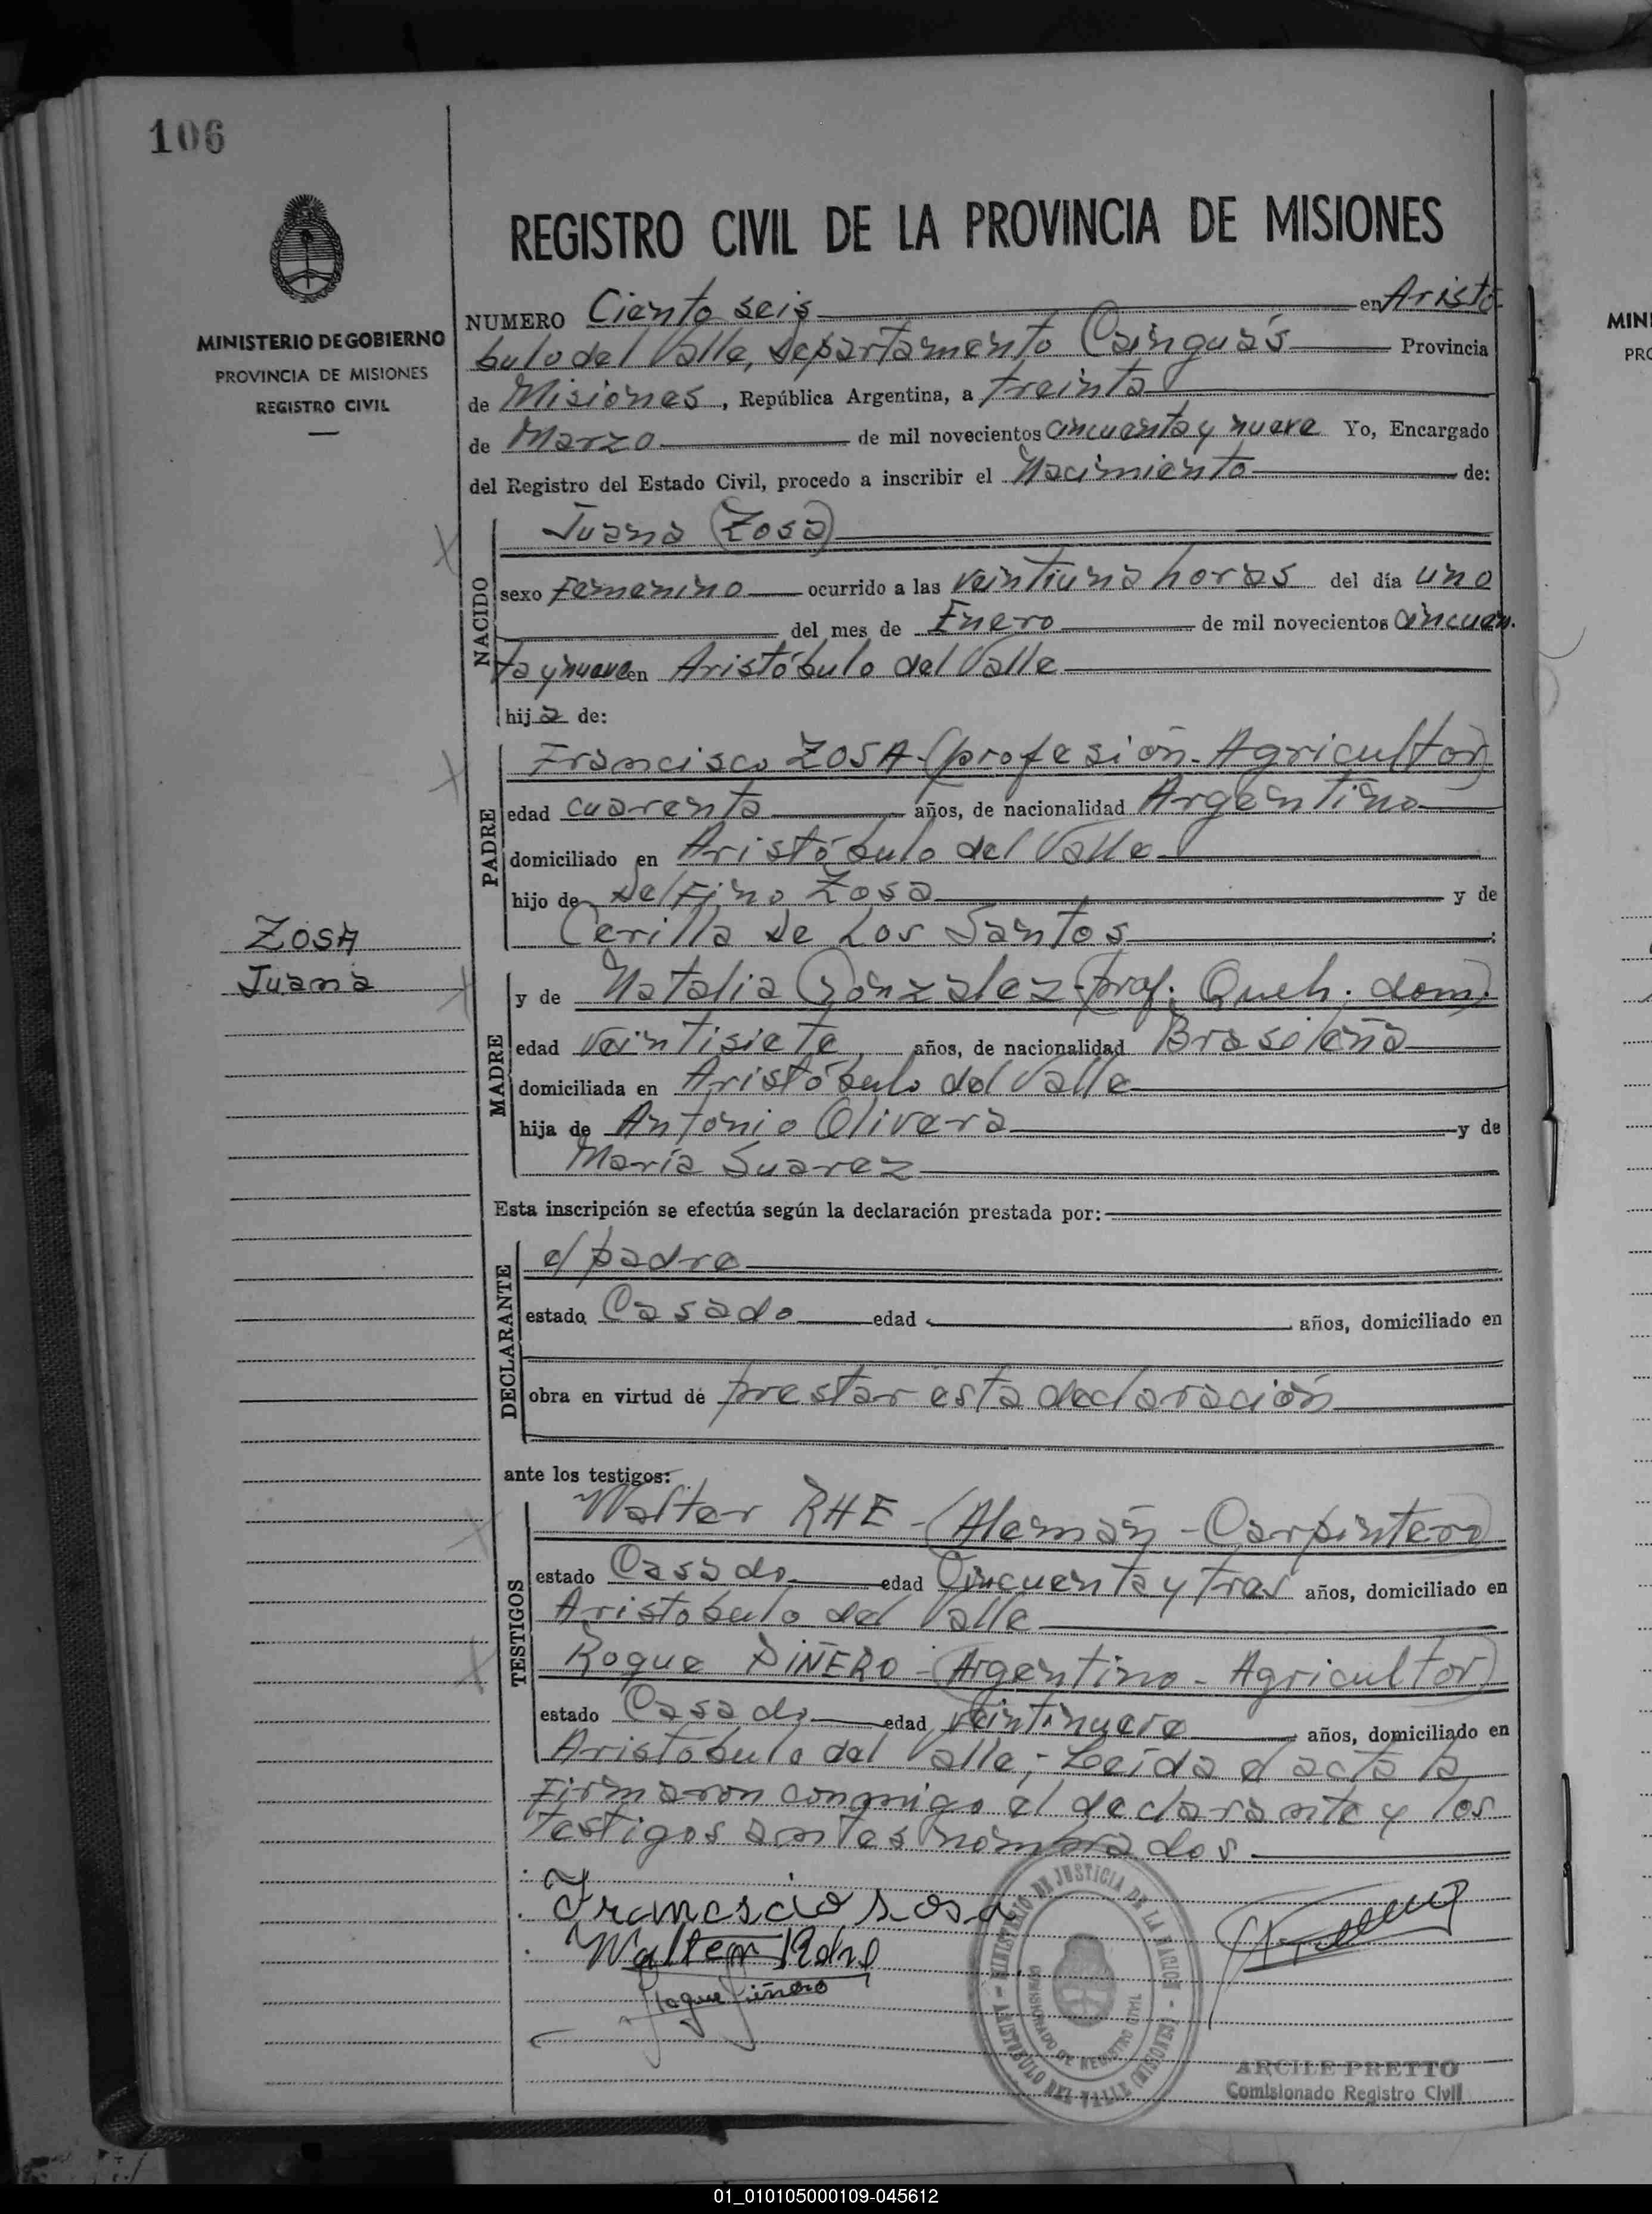 106
MINISTERIO DE GOBIERNO
PROVINCIA DE MISIONES
REGISTRO CIVIL
REGISTRO CIVIL DE LA PROVINCIA DE MISIONES
NUMERO Ciento seis en Aristó
bulo del Valle, Departamento Cainguás Provincia
de Misiones, República Argentina, a treinta
de Marzo de mil novecientos cincuenta y nueve Yo, Encargado
del Registro del Estado Civil, procedo a inscribir el Nacimiento de:
NACIDO
Juana (Zosa)
sexo Femenino ocurrido a las veintiuna horas del día uno
del mes de Enero de mil novecientos cincuen-
ta y nueve en Aristóbulo del Valle
hija de:
PADRE
Francisco ZOSA-(profesión-Agricultor)
edad cuarenta años, de nacionalidad Argentino
domiciliado en Aristóbulo del Valle
hijo de Delfino Zosa y de
Cerilla de Los Santos
ZOSA
Juana
MADRE
y de Natalia González-(prof: Queh. dom.)
edad veintisiete años, de nacionalidad Brasileña
domiciliada en Aristóbulo del Valle
hija de Antonio Olivera y de
María Suarez
Esta inscripción se efectúa según la declaración prestada por:
DECLARANTE
el padre
estado Casado edad años, domiciliado en
obra en virtud de prestar esta declaración
ante los testigos:
TESTIGOS
Walter RHE-(Alemán-Carpintero)
estado Casado edad Cincuenta y tres años, domiciliado en
Aristobulo del Valle
Roque PIÑERO-(Argentino-Agricultor)
estado Casado edad veintinueve años, domiciliado en
Aristóbulo del Valle; Leída el acta la
Firmaron conmigo el declarante y los
testigos antes nombrados.
Francscio sosa
Walter
Roque Piñero
MINISTERIO DE JUSTICIA DE LA NACION
COMISIONADO DE REGISTRO CIVIL
ARISTOBULO DEL VALLE (MISIONES)
ARCILE PRETTO
Comisionado Registro Civil
MINI
PRO
01_010105000109-045612